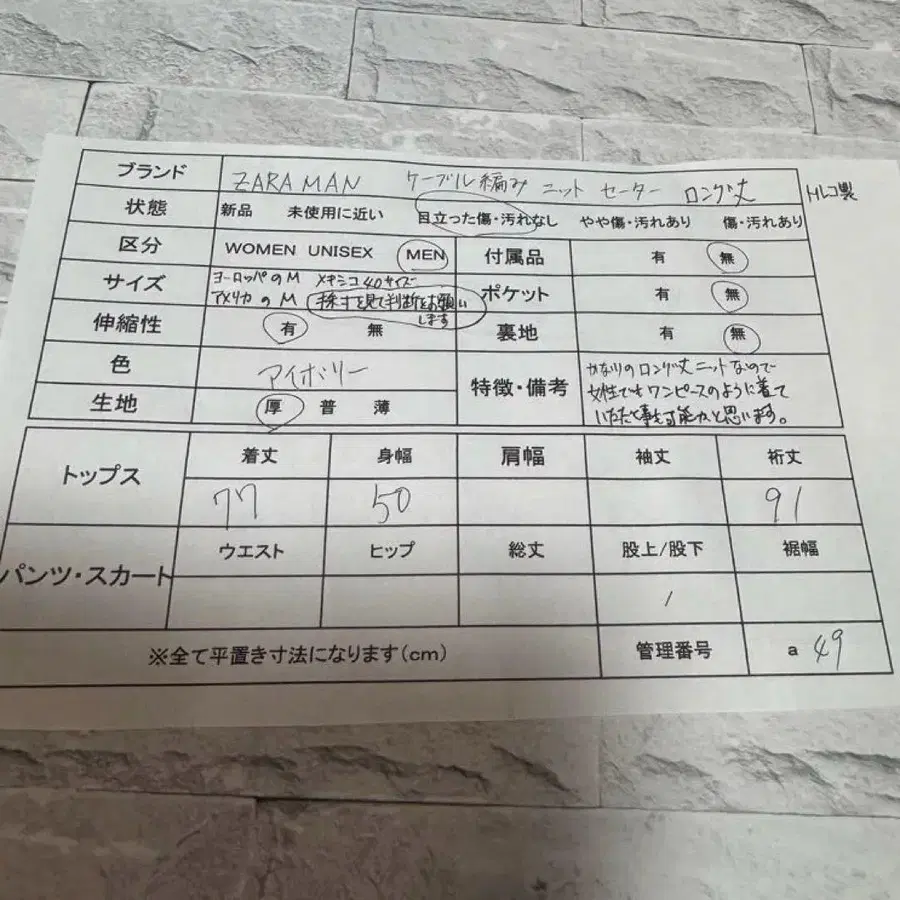 ブランド ZARA MAN ケーブル編み ニット セーター ロング丈 トルコ製
状態 新品 未使用に近い 目立った傷・汚れなし やや傷・汚れあり 傷・汚れあり
区分 WOMEN UNISEX MEN 付属品 有 無
サイズ ヨーロッパのM メキシコ40サイズ
アメリカのM 採寸を見て判断をお願い
します
ポケット 有 無
伸縮性 有 無 裏地 有 無
色 アイボリー
生地 厚 普 薄
特徴・備考 かなりのロング丈ニットなので
女性でもワンピースのように着て
いただく事も可能かと思います。
トップス 着丈 身幅 肩幅 袖丈 裄丈
77 50 91
パンツ・スカート ウエスト ヒップ 総丈 股上/股下 裾幅
/
※全て平置き寸法になります(cm) 管理番号 a 49